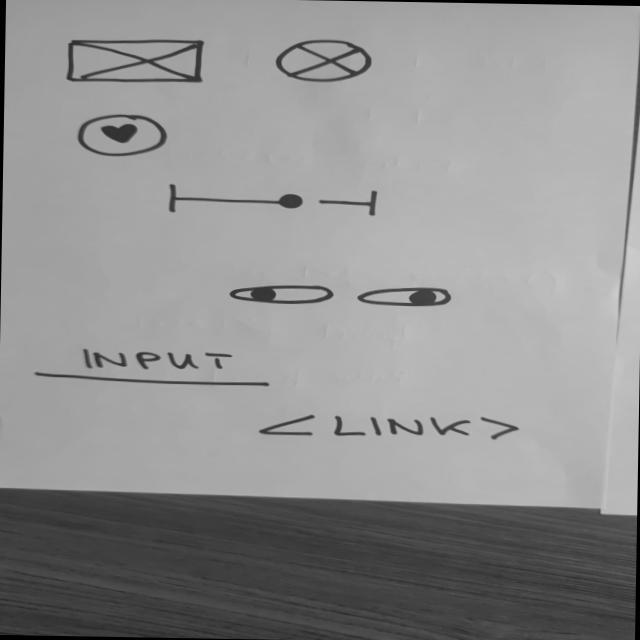 INPUT
<LINK>